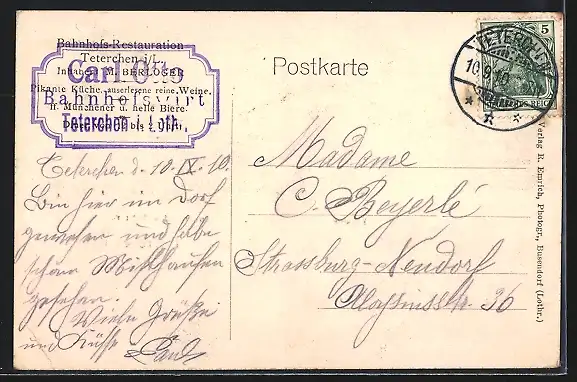 Bahnhofs-Restauration
Teterchen i/L.
Inhaber M. BERLOGER
Pikante Küche, auserlesene reine Weine.
ff. Münchener u. helle Biere.
Carl Ott
Bahnhofswirt
Teterchen i. Loth.
Postkarte
TETERCHEN
10.9.10
5
DEUTSCHES REICH
Teterchen d. 10.IX.10.
Bin hier im Dorf
gewesen und habe
schön Misthaufen
gesehen.
Viele Grüße
und Küsse Paul
Madame
C. Beyerlé
Strassburg-Neudorf
36
Verlag R. Emrich, Photogr., Busendorf (Lothr.)